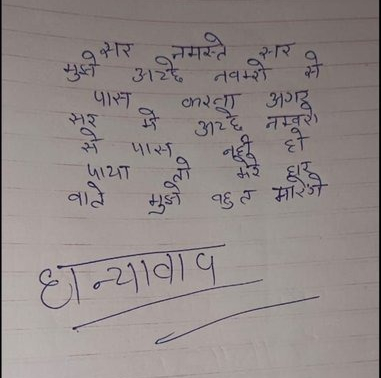 सर नमस्ते सर
मुझे अच्छे नवम्रो से
पास करना अगर
सर मे अच्छे नम्बरो
से पास नही हो
पाया तो मेरे घर
वाले मुझे बहुत मारेगे
धन्यावाद